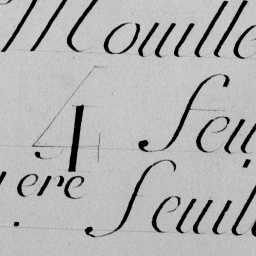 Mouille
4 feu
ere feuil